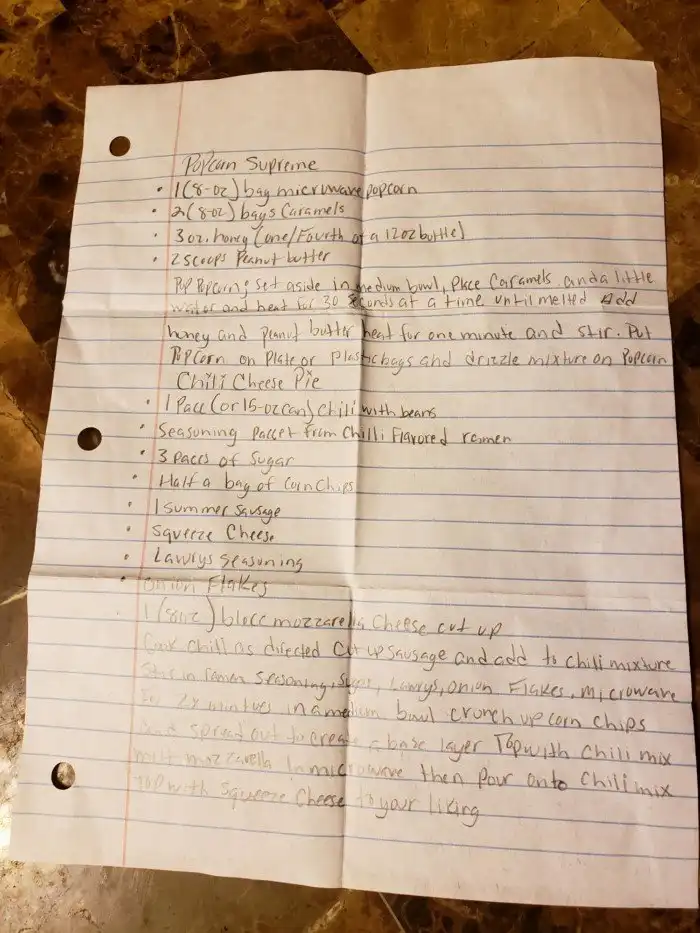 Popcorn Supreme
• 1 (8-oz) bag microwave popcorn
• 2 (8oz) bags Caramels
• 3 oz. honey (one/Fourth of a 12oz bottle)
• 2 scoops Peanut butter
Pop Popcorn, set aside in medium bowl, Place Caramels and a little
water and heat for 30 seconds at a time until melted Add
honey and Peanut butter heat for one minute and stir. Put
Popcorn on Plate or Plastic bags and drizzle mixture on Popcorn
Chili Cheese Pie
• 1 Pacc (or 15-oz can) Chili with beans
• Seasoning Paccet from Chilli Flavored ramen
• 3 paccs of Sugar
• Half a bag of Corn Chips
• 1 Summer Sausage
• Squeeze Cheese
• Lawrys Seasoning
• Onion Flakes
1 (8oz) blocc mozzarella Cheese cut up
Cook chili as directed Cut up Sausage and add to chili mixture
Stir in ramen Seasoning, Sugar, Lawrys, Onion Flakes, Microwave
2 minutes in a medium bowl crunch up corn chips
and spread out to create a base layer Top with chili mix
melt mozzarella in microwave then pour onto Chili mix
top with squeeze Cheese to your liking